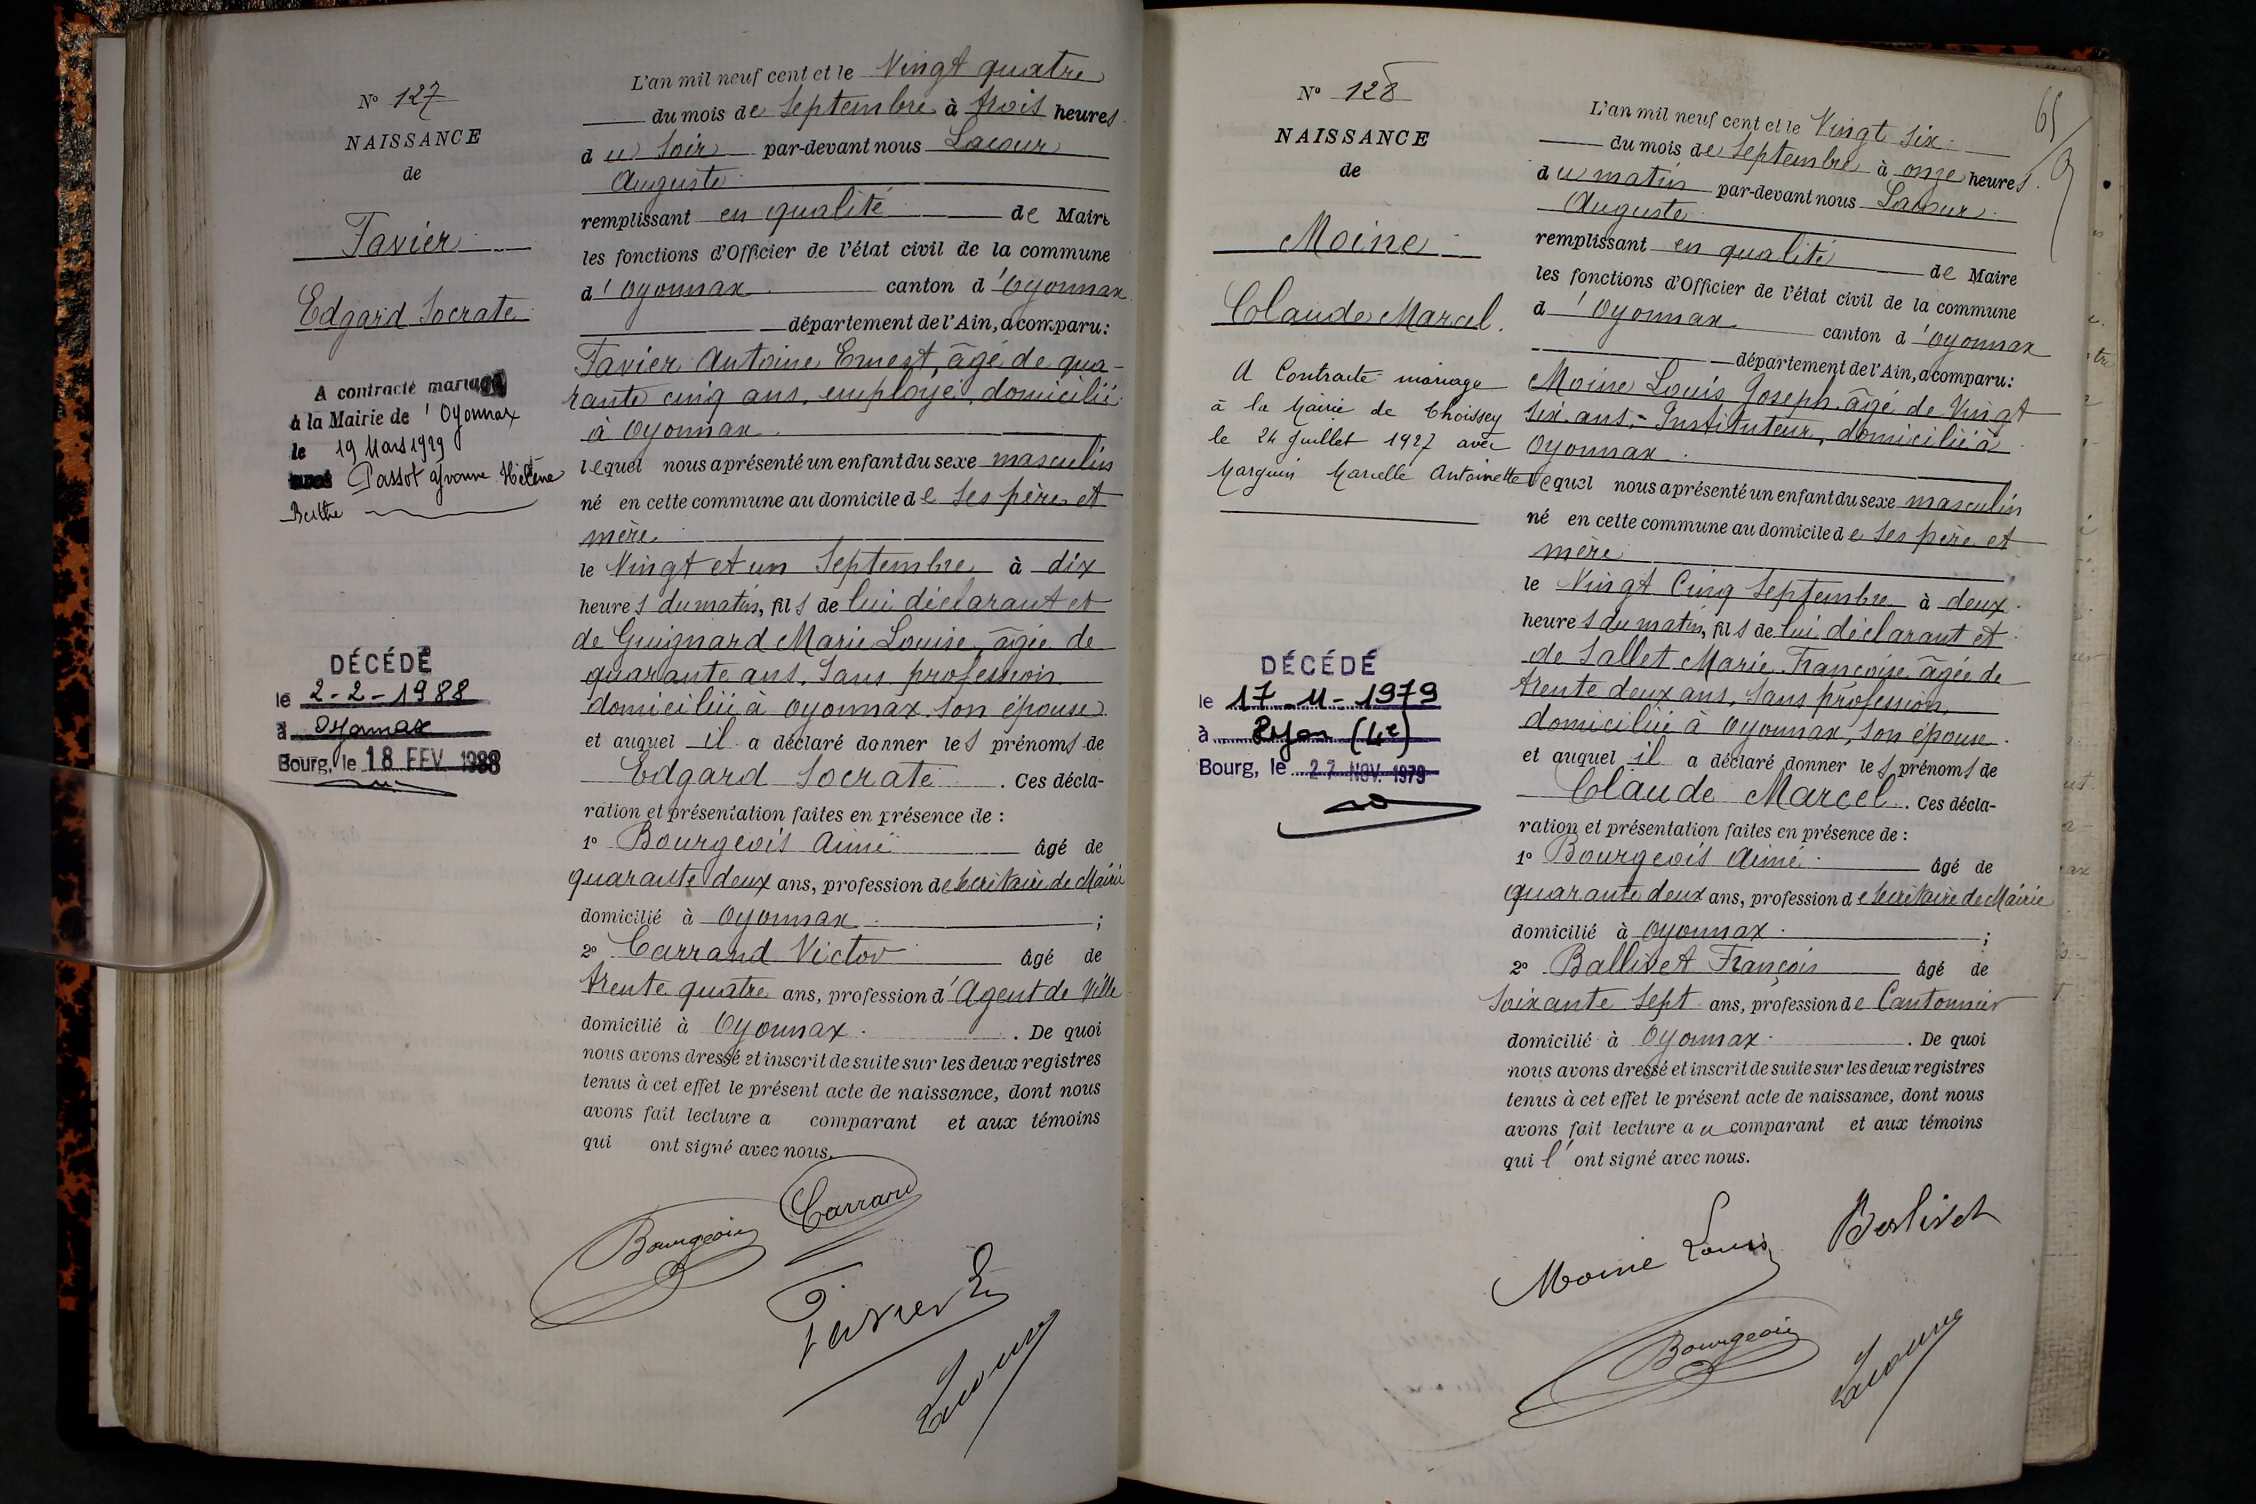 N° 127
NAISSANCE
de
Tavier
Edgard Socrate
A contracté mariage
à la Mairie de d'Oyonnax
le 19 Mars 1929
avec Passot Yvonne Hélène
Berthe
DÉCÉDÉ
le 2-2-1988
à Oyonnax
Bourg, le 18 FEV. 1988
L'an mil neuf cent et le Vingt quatre
du mois de Septembre à trois heures
du soir par-devant nous Lacour
Auguste
remplissant en qualité de Maire
les fonctions d'Officier de l'état civil de la commune
d'Oyonnax canton d'Oyonnax
département de l'Ain, a comparu:
Tavier Antoine Ernest, âgé de qua-
rante cinq ans, employé, domicilié
à Oyonnax
lequel nous a présenté un enfant du sexe masculin
né en cette commune au domicile de ses père et
mère
le Vingt et un Septembre à dix
heures du matin, fils de lui déclarant et
de Guignard Marie Louise, âgée de
quarante ans, sans profession
domiciliée à Oyonnax son épouse
et auquel il a déclaré donner les prénoms de
Edgard Socrate. Ces décla-
ration et présentation faites en présence de :
1° Bourgeois Aimé âgé de
quarante deux ans, profession de Secrétaire de Mairie
domicilié à Oyonnax ;
2° Carrand Victor âgé de
trente quatre ans, profession d'Agent de Ville
domicilié à Oyonnax. De quoi
nous avons dressé et inscrit de suite sur les deux registres
tenus à cet effet le présent acte de naissance, dont nous
avons fait lecture a comparant et aux témoins
qui ont signé avec nous.
Carrand
Bourgeois
Tavier E
Lacour
65
N° 128
NAISSANCE
de
Moine
Claude Marcel.
A Contracté mariage
à la Mairie de Choissey
le 24 Juillet 1927 avec
Marguin Marcelle Antoinette
DÉCÉDÉ
le 17-11-1979
à Lyon (4e)
Bourg, le 27 NOV. 1979
L'an mil neuf cent et le Vingt six
du mois de Septembre à onze heures
du matin par-devant nous Lacour
Auguste
remplissant en qualité de Maire
les fonctions d'Officier de l'état civil de la commune
d'Oyonnax canton d'Oyonnax
département de l'Ain, a comparu:
Moine Louis Joseph âgé de Vingt
six ans, Instituteur, domicilié à
Oyonnax
lequel nous a présenté un enfant du sexe masculin
né en cette commune au domicile de ses père et
mère
le Vingt Cinq Septembre à deux
heures du matin, fils de lui déclarant et
de Sallet Marie Françoise âgée de
trente deux ans, sans profession,
domiciliée à Oyonnax, son épouse
et auquel il a déclaré donner les prénoms de
Claude Marcel. Ces décla-
ration et présentation faites en présence de :
1° Bourgeois Aimé âgé de
quarante deux ans, profession de Secrétaire de Mairie
domicilié à Oyonnax ;
2° Ballivet François âgé de
soixante sept ans, profession de Cantonnier
domicilié à Oyonnax. De quoi
nous avons dressé et inscrit de suite sur les deux registres
tenus à cet effet le présent acte de naissance, dont nous
avons fait lecture au comparant et aux témoins
qui l'ont signé avec nous.
Moine Louis
Bourgeois
Lacour